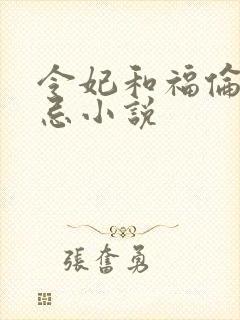 令妃和福倫
忌小説
張奮勇